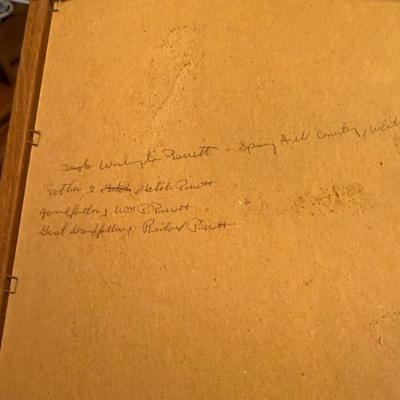 Jacob Washington Parrott - Spring Hill Country, White
Father of Hatch Parrott
grandfather of Wm P. Parrott
Great Grandfather of Richard Parrott